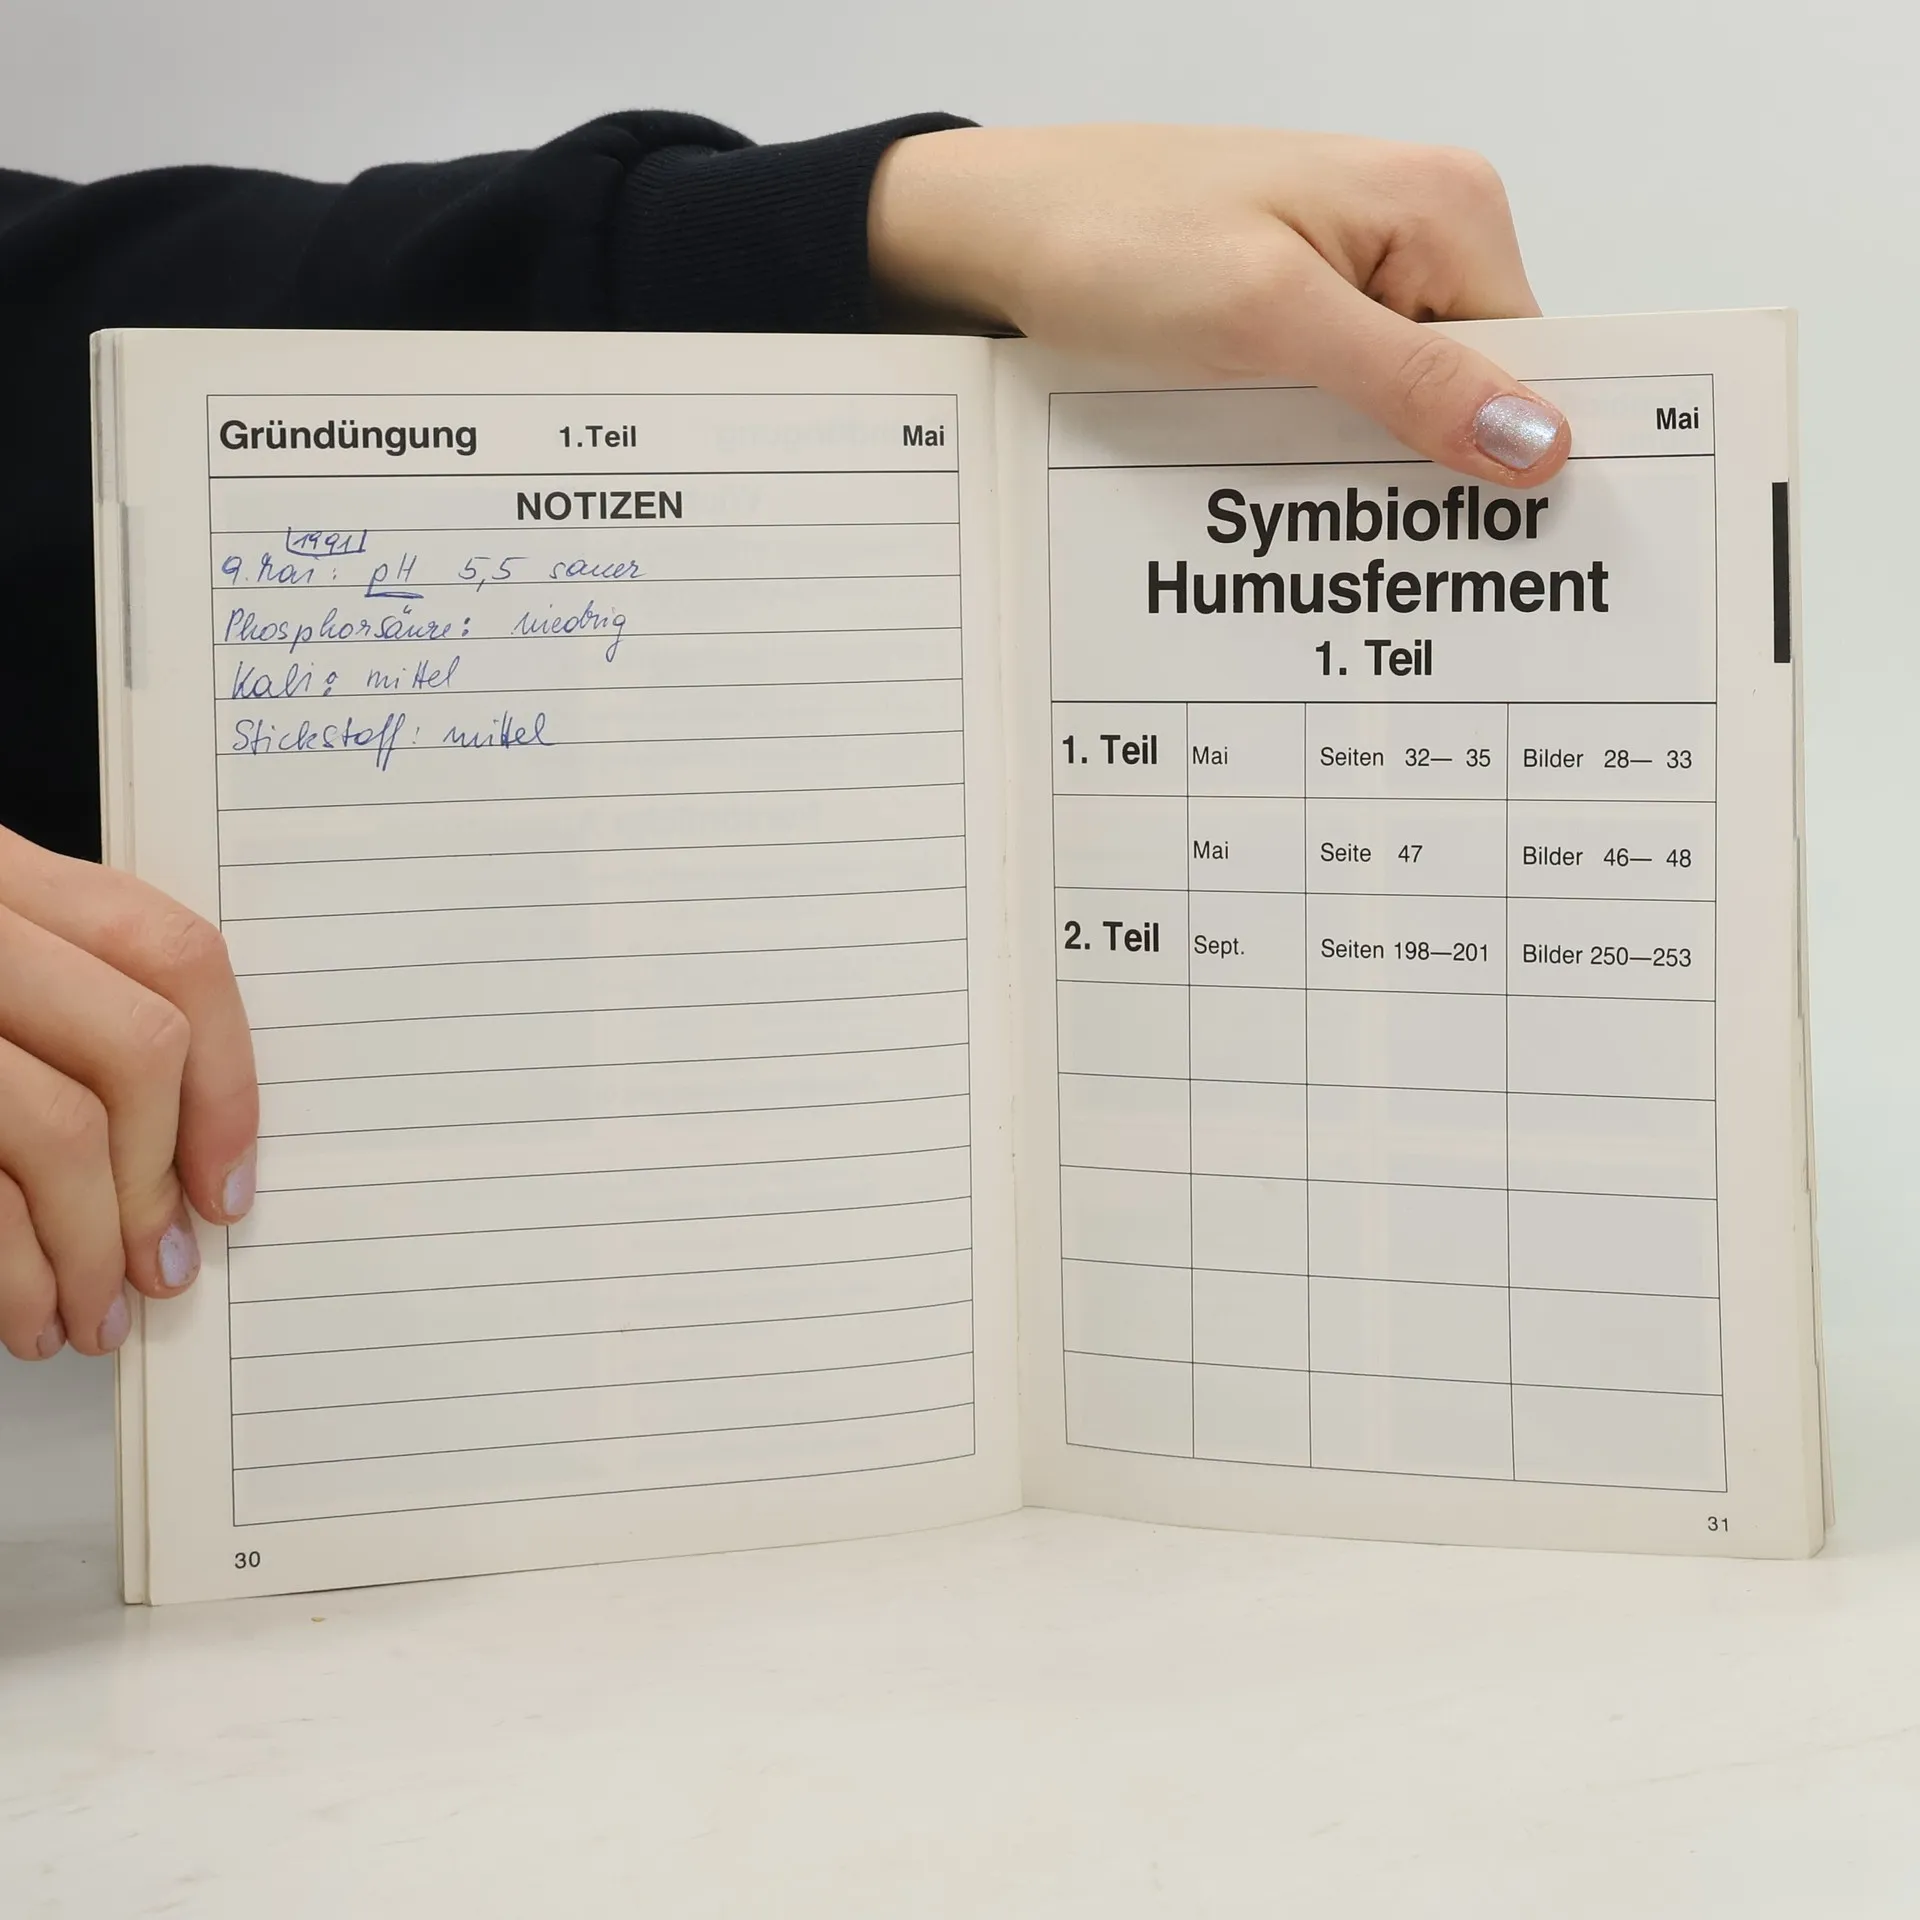 Gründüngung 1.Teil Mai
NOTIZEN
1991
9. Mai: pH 5,5 sauer
Phosphorsäure: niedrig
Kali: mittel
Stickstoff: mittel
30
Mai
Symbioflor
Humusferment
1. Teil
1. Teil Mai Seiten 32— 35 Bilder 28— 33
Mai Seite 47 Bilder 46— 48
2. Teil Sept. Seiten 198—201 Bilder 250—253
31